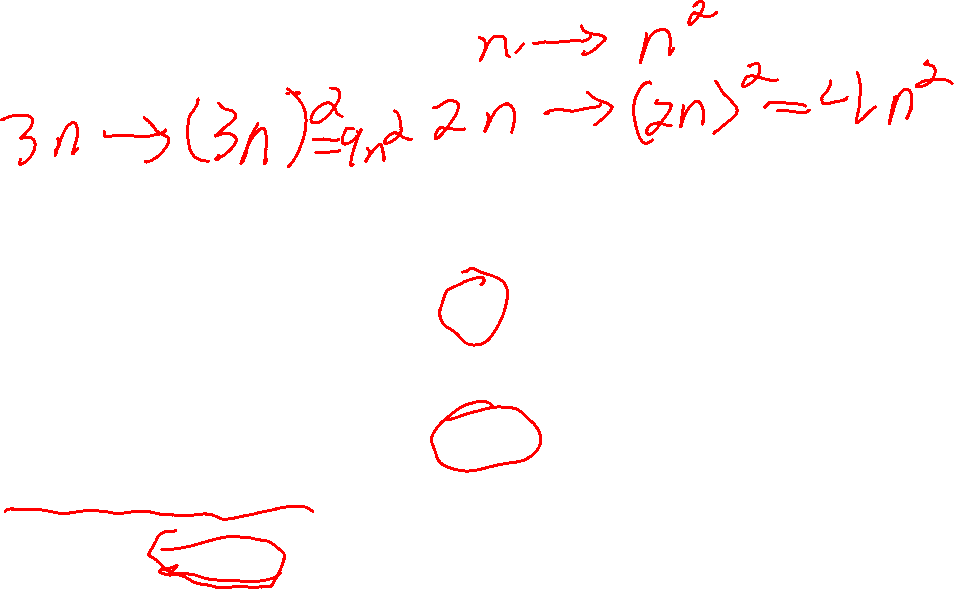 n → n²
3n → (3n)² = 9n² 2n → (2n)² = 4n²